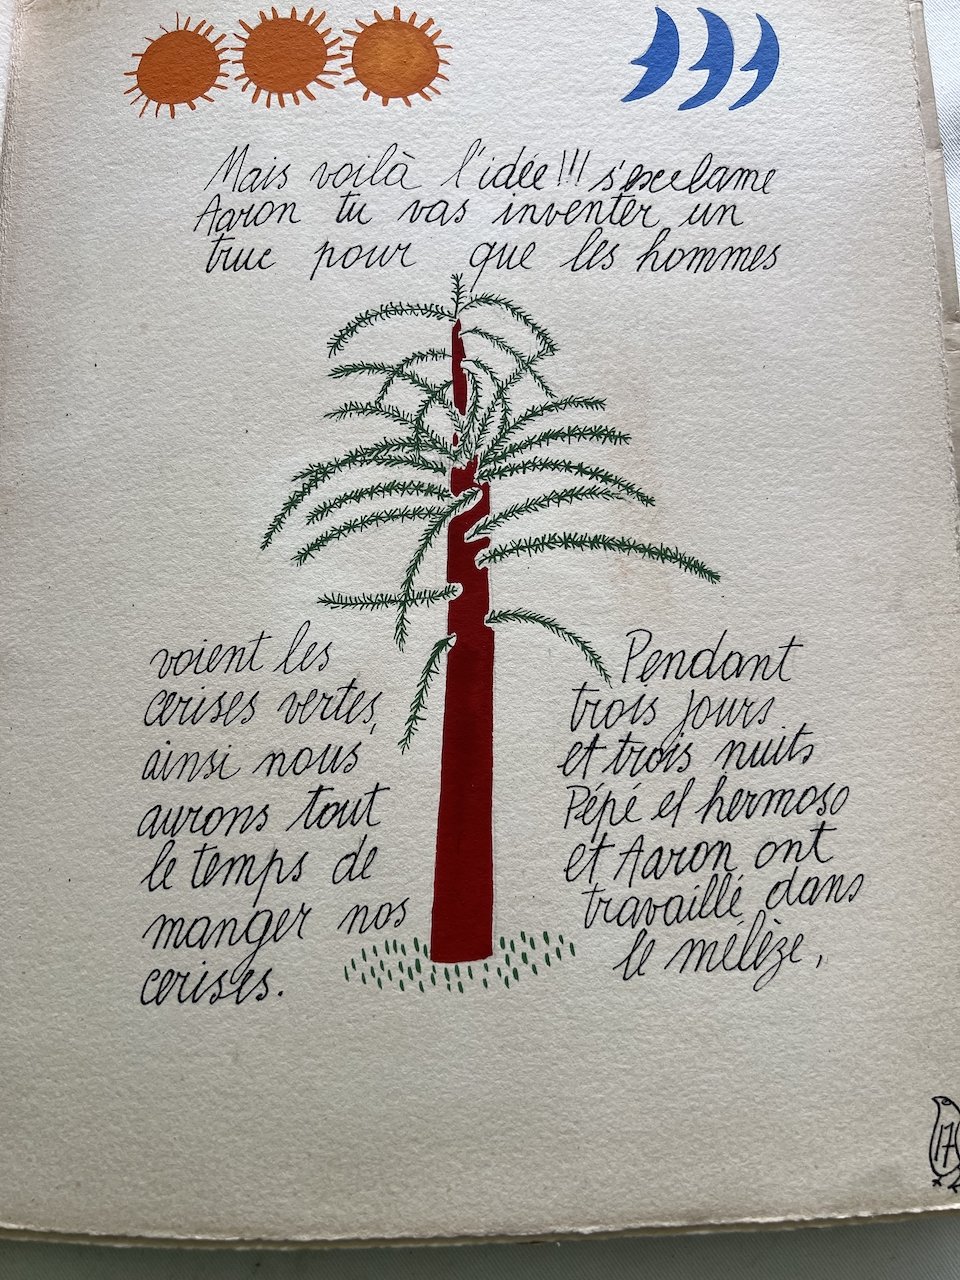 Mais voilà l'idée!!! s'exclame
Aaron tu vas inventer un
truc pour que les hommes
voient les
cerises vertes,
ainsi nous
aurons tout
le temps de
manger nos
cerises.
Pendant
trois jours
et trois nuits
Pépé el hermoso
et Aaron ont
travaillé dans
le mélèze,
17